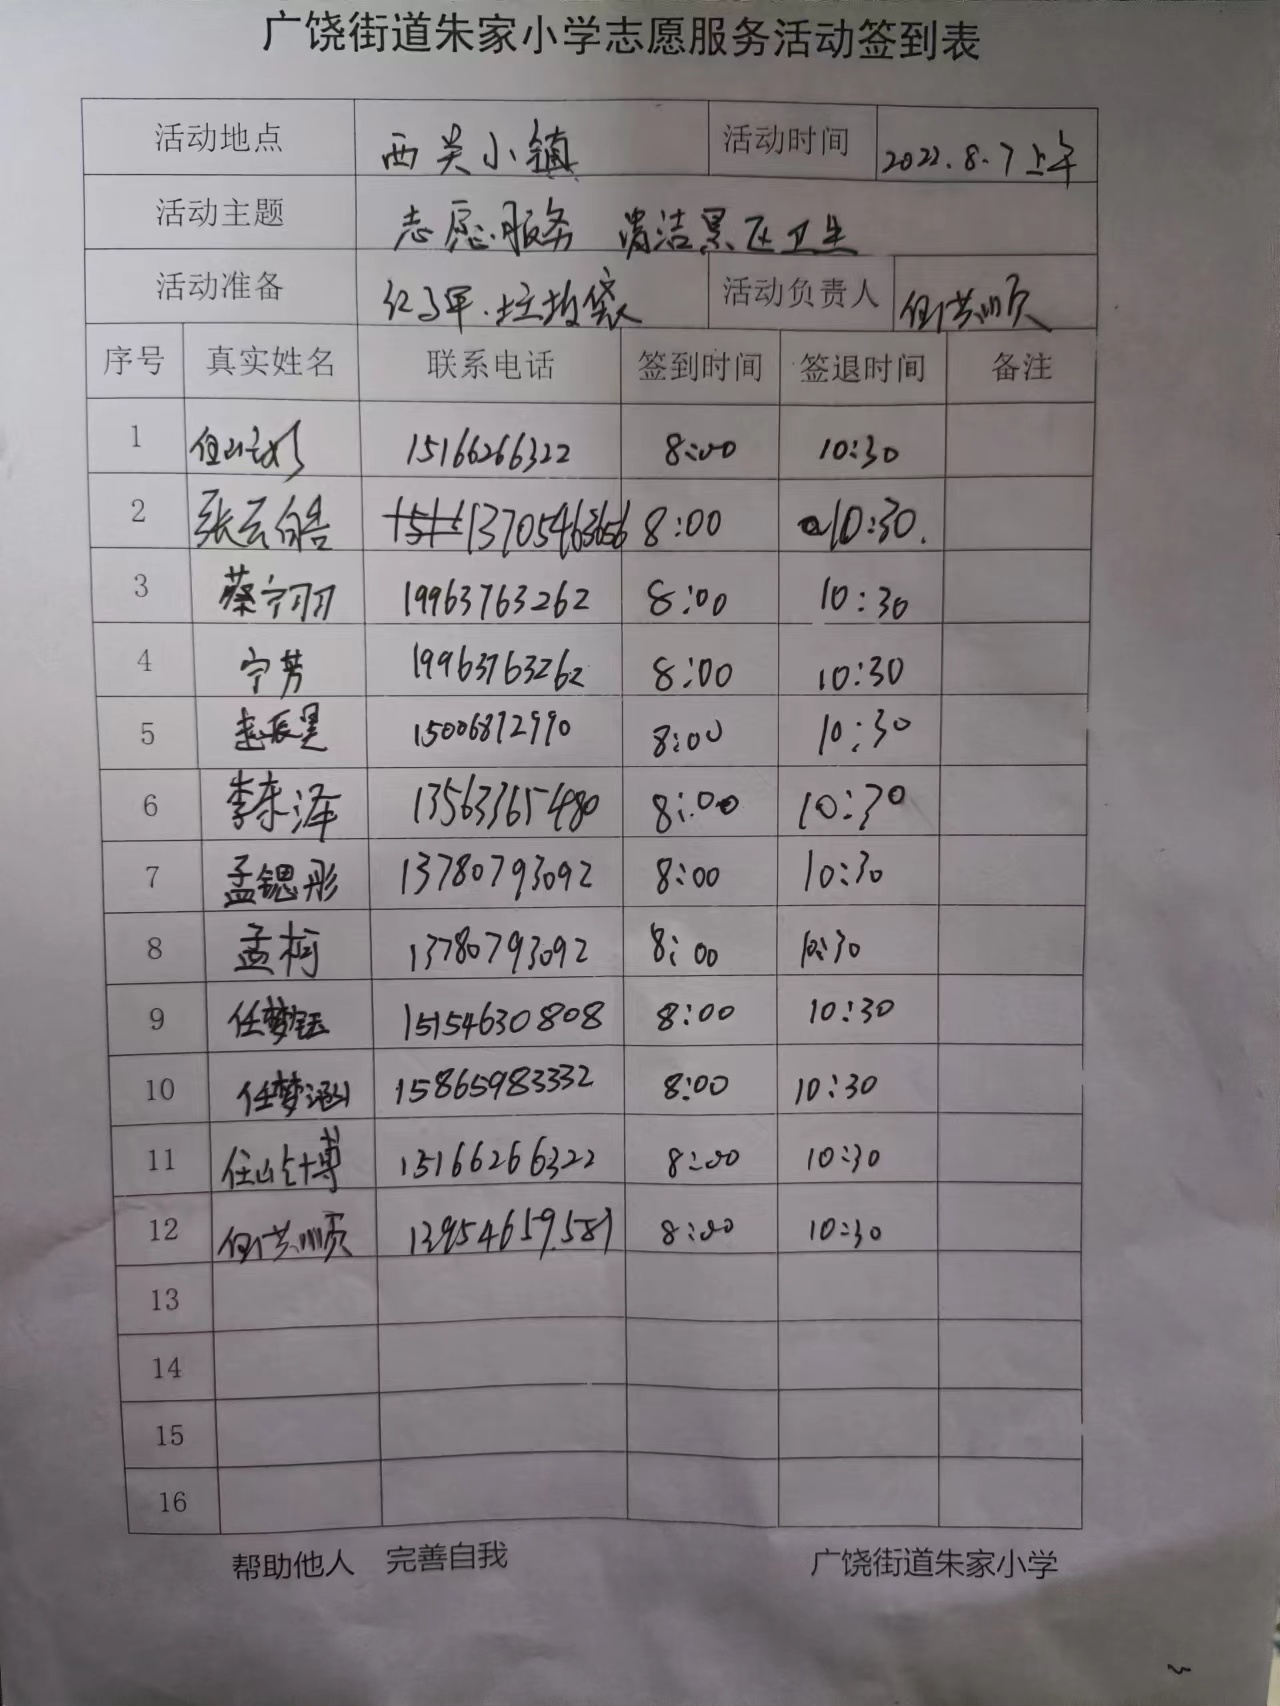 广饶街道朱家小学志愿服务活动签到表
活动地点 西关小镇 活动时间 2022.8.7上午
活动主题 志愿服务 清洁景区卫生
活动准备 红马甲.垃圾袋 活动负责人 任洪顺
序号 真实姓名 联系电话 签到时间 签退时间 备注
1 15166266322 8:00 10:30
2 张云皓 13705463656 8:00 10:30.
3 蔡宁羽 19963763262 8:00 10:30
4 宁芳 19963763262 8:00 10:30
5 赵辰昊 15006872990 8:00 10:30
6 李东泽 13563365480 8:00 10:30
7 孟锶彤 13780793092 8:00 10:30
8 孟柯 13780793092 8:00 10:30
9 任梦钰 15154630808 8:00 10:30
10 任梦涵 15865983332 8:00 10:30
11 15166266322 8:00 10:30
12 任洪顺 8:00 10:30
13
14
15
16
帮助他人 完善自我 广饶街道朱家小学